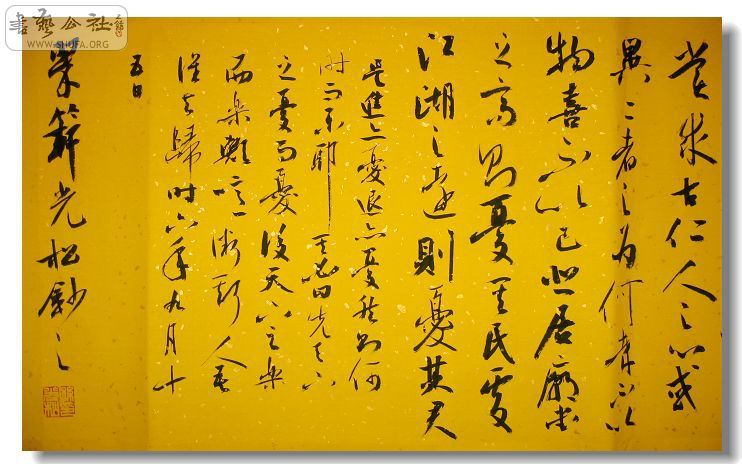 嘗求古仁人之心或
異二者之為何不以
物喜不以己悲居廟堂
之高則憂其民處
江湖之遠則憂其君
是進亦憂退亦憂然則何
時而樂耶其必曰先天下
之憂而憂後天下之樂
而樂歟噫微斯人吾
誰與歸時六年九月十
五日
畢節光松鈔之
書藝公社
WWW.SHUFA.ORG